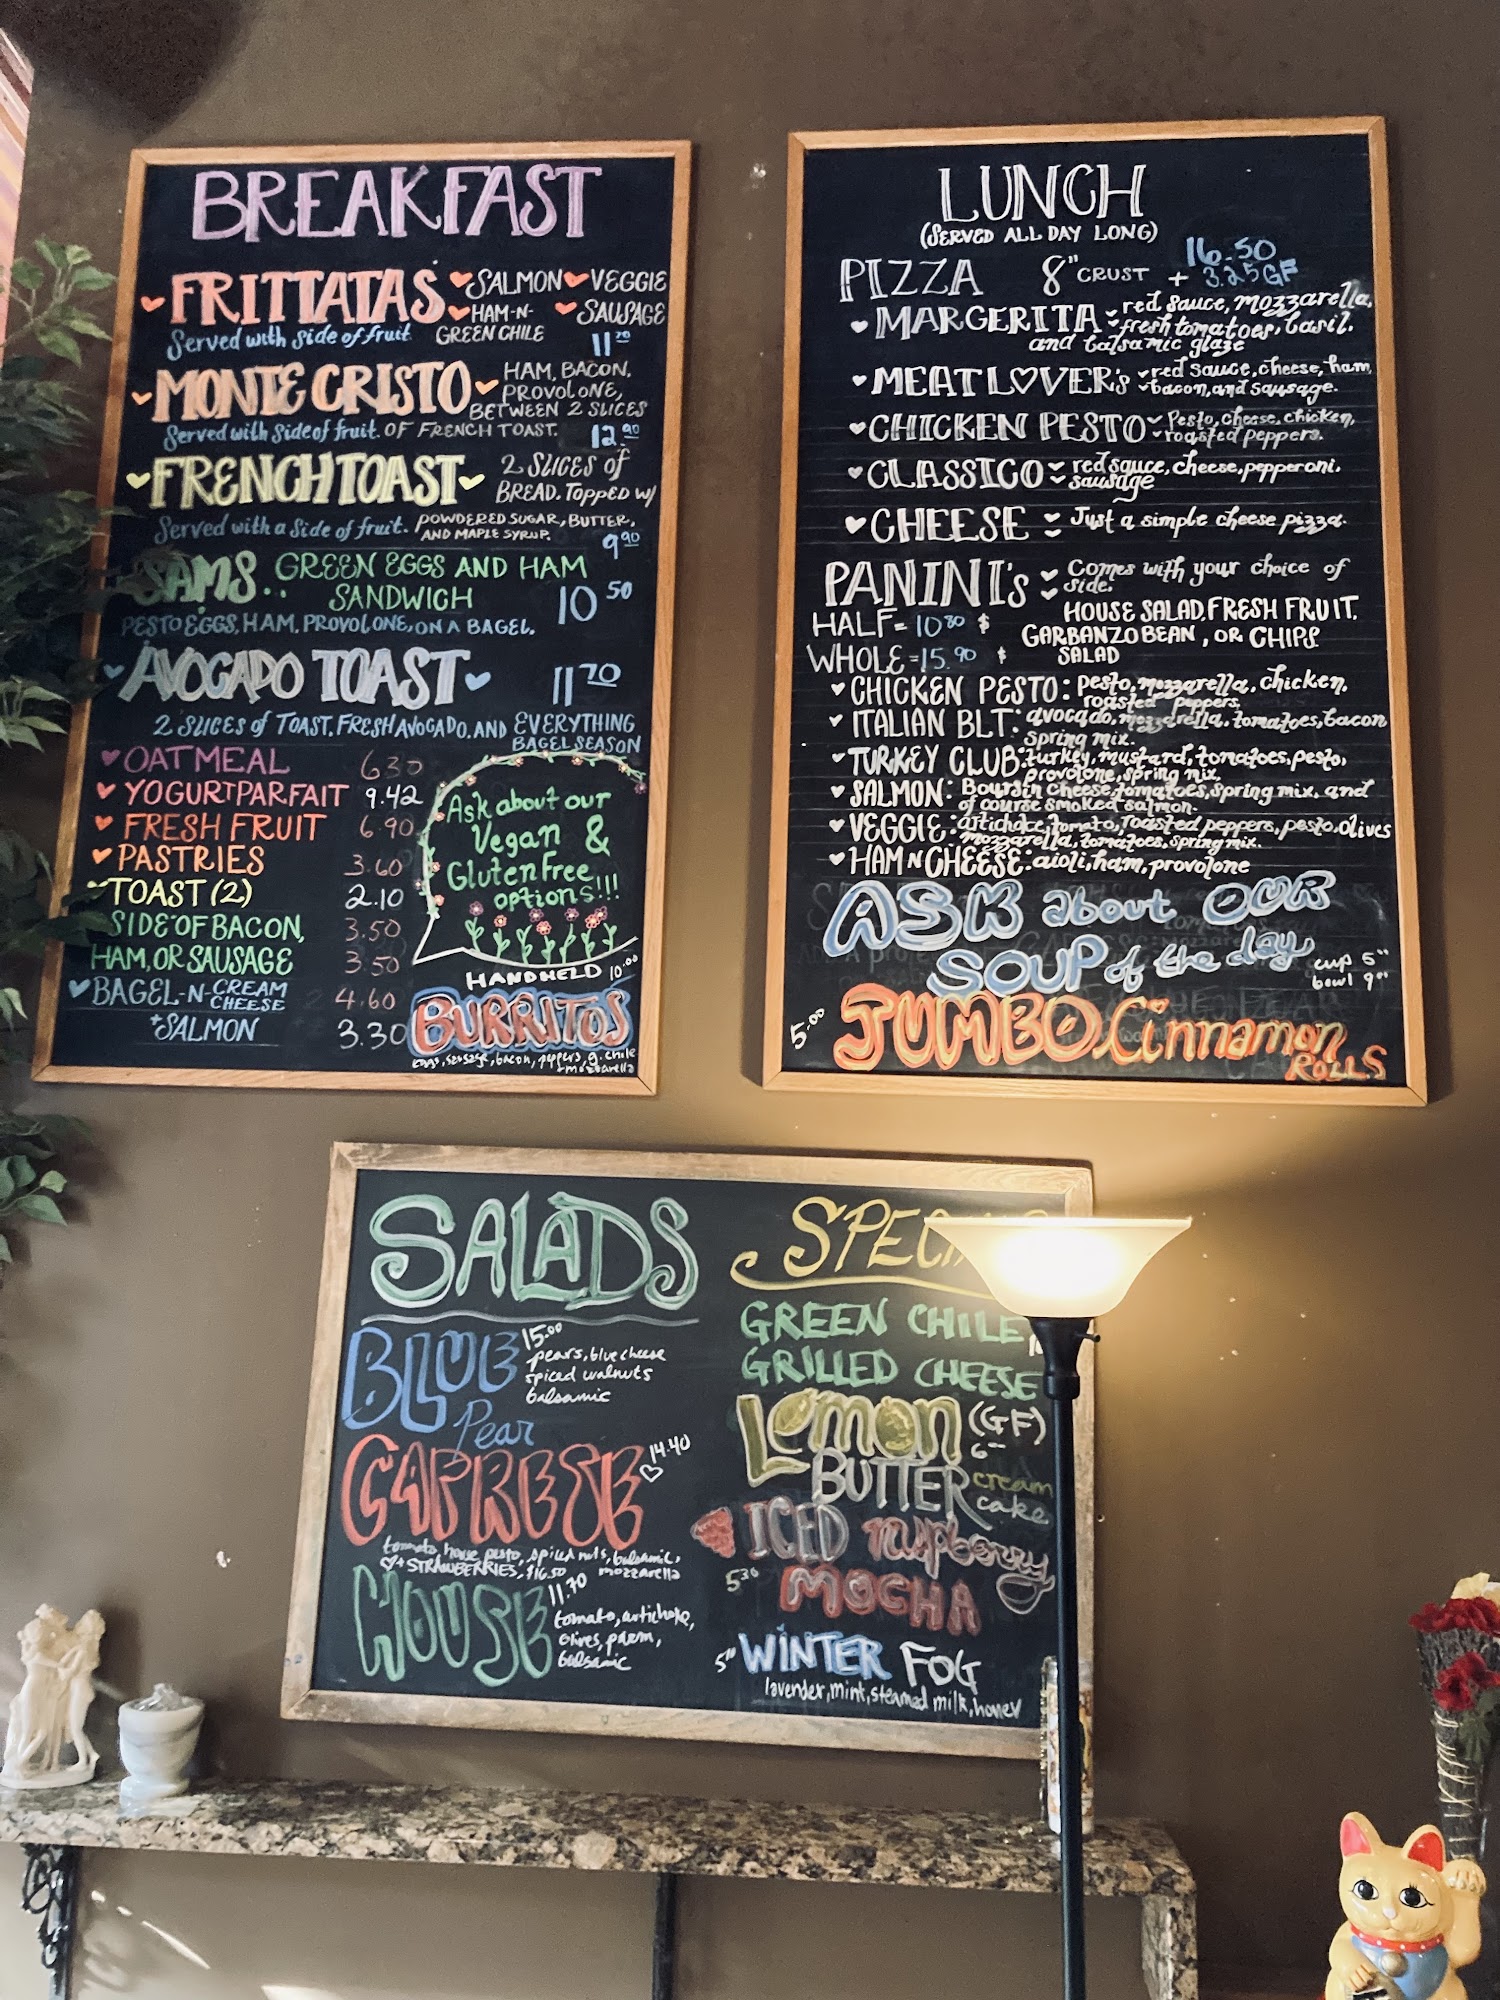 BREAKFAST
FRITTATAS SALMON VEGGIE
HAM-N- SAUSAGE
Served with side of fruit GREEN CHILE 11.70
MONTE CRISTO HAM, BACON,
PROVOLONE,
BETWEEN 2 SLICES
Served with side of fruit. OF FRENCH TOAST. 12.90
FRENCH TOAST 2 SLICES of
BREAD. TOPPED W/
Served with a side of fruit. POWDERED SUGAR, BUTTER,
AND MAPLE SYRUP. 9.90
SAMS.. GREEN EGGS AND HAM
SANDWICH 10 50
PESTO EGGS, HAM, PROVOLONE, ON A BAGEL.
AVOCADO TOAST 11 70
2 SLICES of TOAST, FRESH AVOCADO, AND EVERYTHING
BAGEL SEASON
OATMEAL 6.30
YOGURT PARFAIT 9.42
FRESH FRUIT 6.90
PASTRIES 3.60
TOAST (2) 2.10
SIDE OF BACON, 3.50
HAM, OR SAUSAGE 3.50
BAGEL-N-CREAM CHEESE 4.60
+SALMON 3.30
Ask about our
Vegan &
Gluten Free
options!!!
HANDHELD 10.00
BURRITOS
eggs, sausage, bacon, peppers, g. chile
+ mozzarella
LUNCH
(SERVED ALL DAY LONG)
PIZZA 8" CRUST 16.50
+ 3.25 GF
MARGERITA red sauce, mozzarella,
fresh tomatoes, basil,
and balsamic glaze
MEAT LOVER'S red sauce, cheese, ham,
bacon, and sausage.
CHICKEN PESTO Pesto, cheese, chicken,
roasted peppers.
CLASSICO red sauce, cheese, pepperoni,
sausage
CHEESE Just a simple cheese pizza.
PANINI'S Comes with your choice of
side.
HALF= 10.80 $ HOUSE SALAD, FRESH FRUIT,
GARBANZO BEAN, OR CHIPS
WHOLE=15.90 $ SALAD
CHICKEN PESTO: pesto, mozzarella, chicken,
roasted peppers
ITALIAN BLT: avocado, mozzarella, tomatoes, bacon
spring mix.
TURKEY CLUB: turkey, mustard, tomatoes, pesto,
provolone, spring mix
SALMON: Boursin cheese, tomatoes, spring mix, and
of course smoked salmon.
VEGGIE: artichoke, tomato, roasted peppers, pesto, olives
mozzarella, tomatoes, spring mix.
HAM N CHEESE: aioli, ham, provolone
ASK about OUR
SOUP of the day cup 5
bowl 9
5.00 JUMBO Cinnamon
ROLLS
SALADS
BLUE 15.00
pears, blue cheese
spiced walnuts
balsamic
Pear
CAPRESE 14.40
tomato, house pesto, spiced nuts, balsamic,
+ STRAWBERRIES, $16.50 mozzarella
HOUSE 11.70
tomato, artichoke,
olives, parm,
balsamic
GREEN CHILE
GRILLED CHEESE
Lemon (GF)
6
BUTTER cream
cake
ICED raspberry
5 30 MOCHA
WINTER FOG
lavender, mint, steamed milk, honey